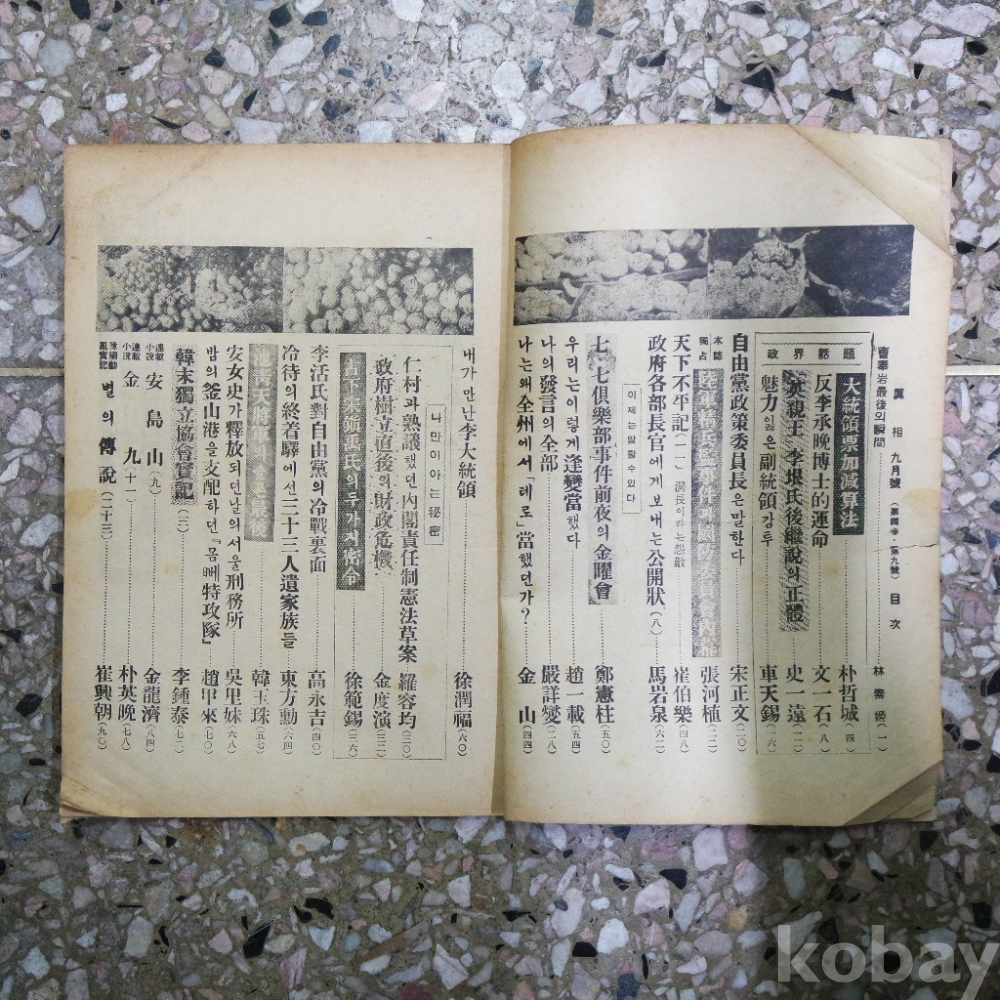 眞相 九月號 (第四卷・第九號) 目次
曺奉岩最後의瞬間 林 (一)
政界話題
大統領票加減算法 朴哲城 (四)
反李承晚博士的運命 文一石 (八)
英親王 李垠氏後繼說의正體 史一遠 (一二)
魅力 잃은副統領감투 車天錫 (一六)
自由黨政策委員長은말한다 宋正文 (二〇)
本誌獨占
張河植 (二二)
天下不平記 (一) 洞長이라는怨敵 崔伯樂 (四八)
政府各部長官에게보내는公開狀 (八) 馬岩泉 (六二)
이제는말할수있다
七・七俱樂部事件前夜의金曜會 鄭憲柱 (五〇)
우리는이렇게逢變當했다 趙一載 (五四)
나의發言의全部 嚴詳燮 (二八)
나는왜全州에서「테로」當했던가? 金山 (四四)
내가 만난李大統領 徐潤福 (六〇)
나만이아는秘密
仁村과熟議했던內閣責任制憲法草案 羅容均 (三〇)
政府樹立直後의財政危機 金度演 (三三)
古下 宋鎭禹氏의두가지 徐範錫 (三六)
李活氏對自由黨의冷戰裏面 高永吉 (四〇)
冷待의終着驛에선三十三人遺家族들 東方勳 (六四)
韓玉珠 (五七)
安女史가釋放되던날의서울刑務所 吳里妹 (六八)
밤의釜山港을支配하던『몸뻬特攻隊』 趙甲來 (七〇)
韓末獨立協會實記 (三) 李鍾泰 (七二)
連載小說 安島山 (九) 金龍濟 (八四)
連載小說 金九 (十一) 朴英晩 (七八)
별의傳說 (二十三) 崔興朝 (九〇)
kobay